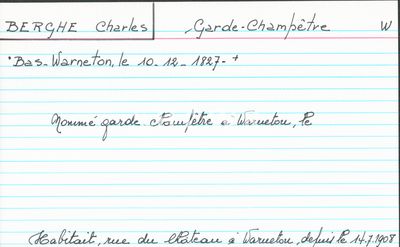 BERGHE Charles Garde-Champêtre W
° Bas-Warneton, le 10-12-1827- +
Nommé garde-Champêtre à Warneton, le
Habitait, rue du Château à Warneton, depuis le 14.7.1908.